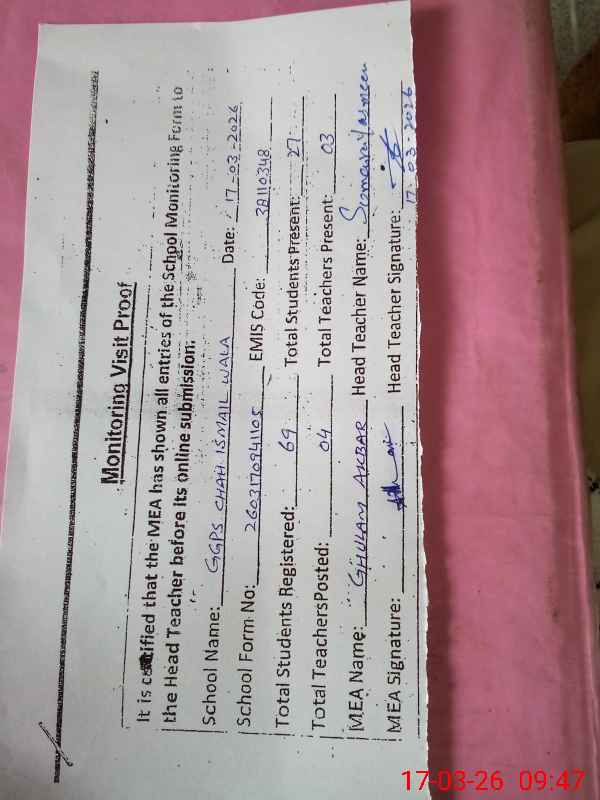 Monitoring Visit Proof
It is certified that the MEA has shown all entries of the School Monitoring Form to
the Head Teacher before its online submission.
School Name: GGPS CHAH ISMAIL WALA Date: 17-03-2026
School Form No: 2603170941105 EMIS Code: 38110348
Total Students Registered: 69 Total Students Present: 27
Total Teachers Posted: 04 Total Teachers Present: 03
MEA Name: GHULAM AKBAR Head Teacher Name:
MEA Signature: Head Teacher Signature:
17.03.2026
17-03-26 09:47